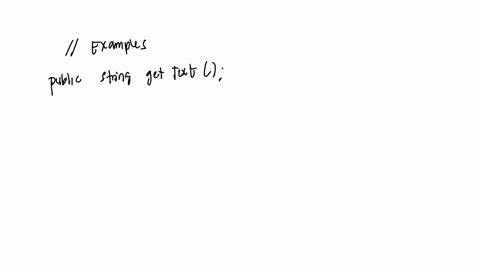 // Examples
public string get Text ();